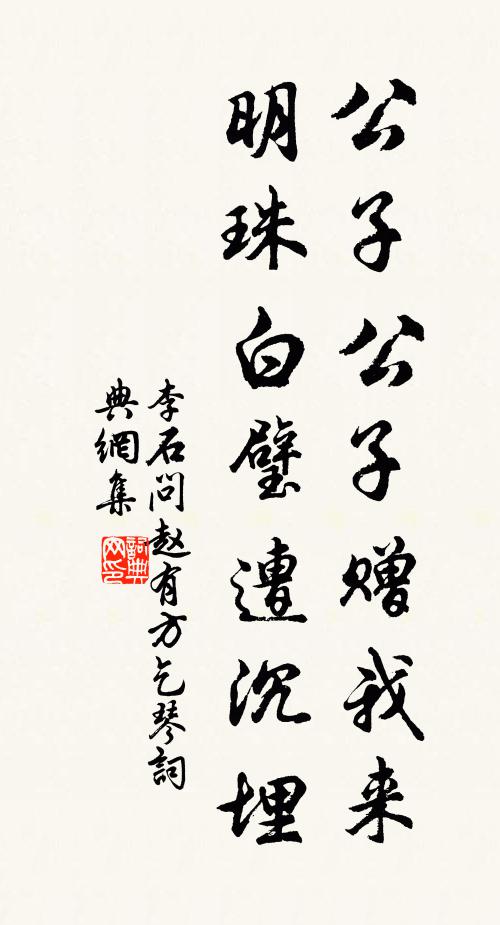 公子公子赠我来
明珠白璧遭沉埋
李石问赵有方乞琴詞
典網集
詞典網印